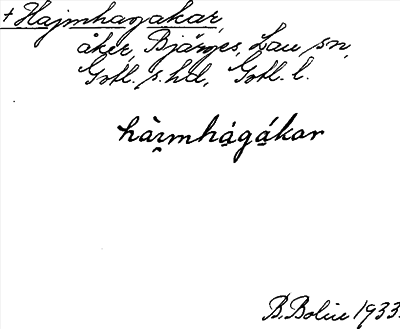 + Hajmhagakar,
åker, Bjärges, Lau sn,
Gotl. s. hd, Gotl. l.
hàr̬mhá̱gá̱kar
B. Bolin 1933.